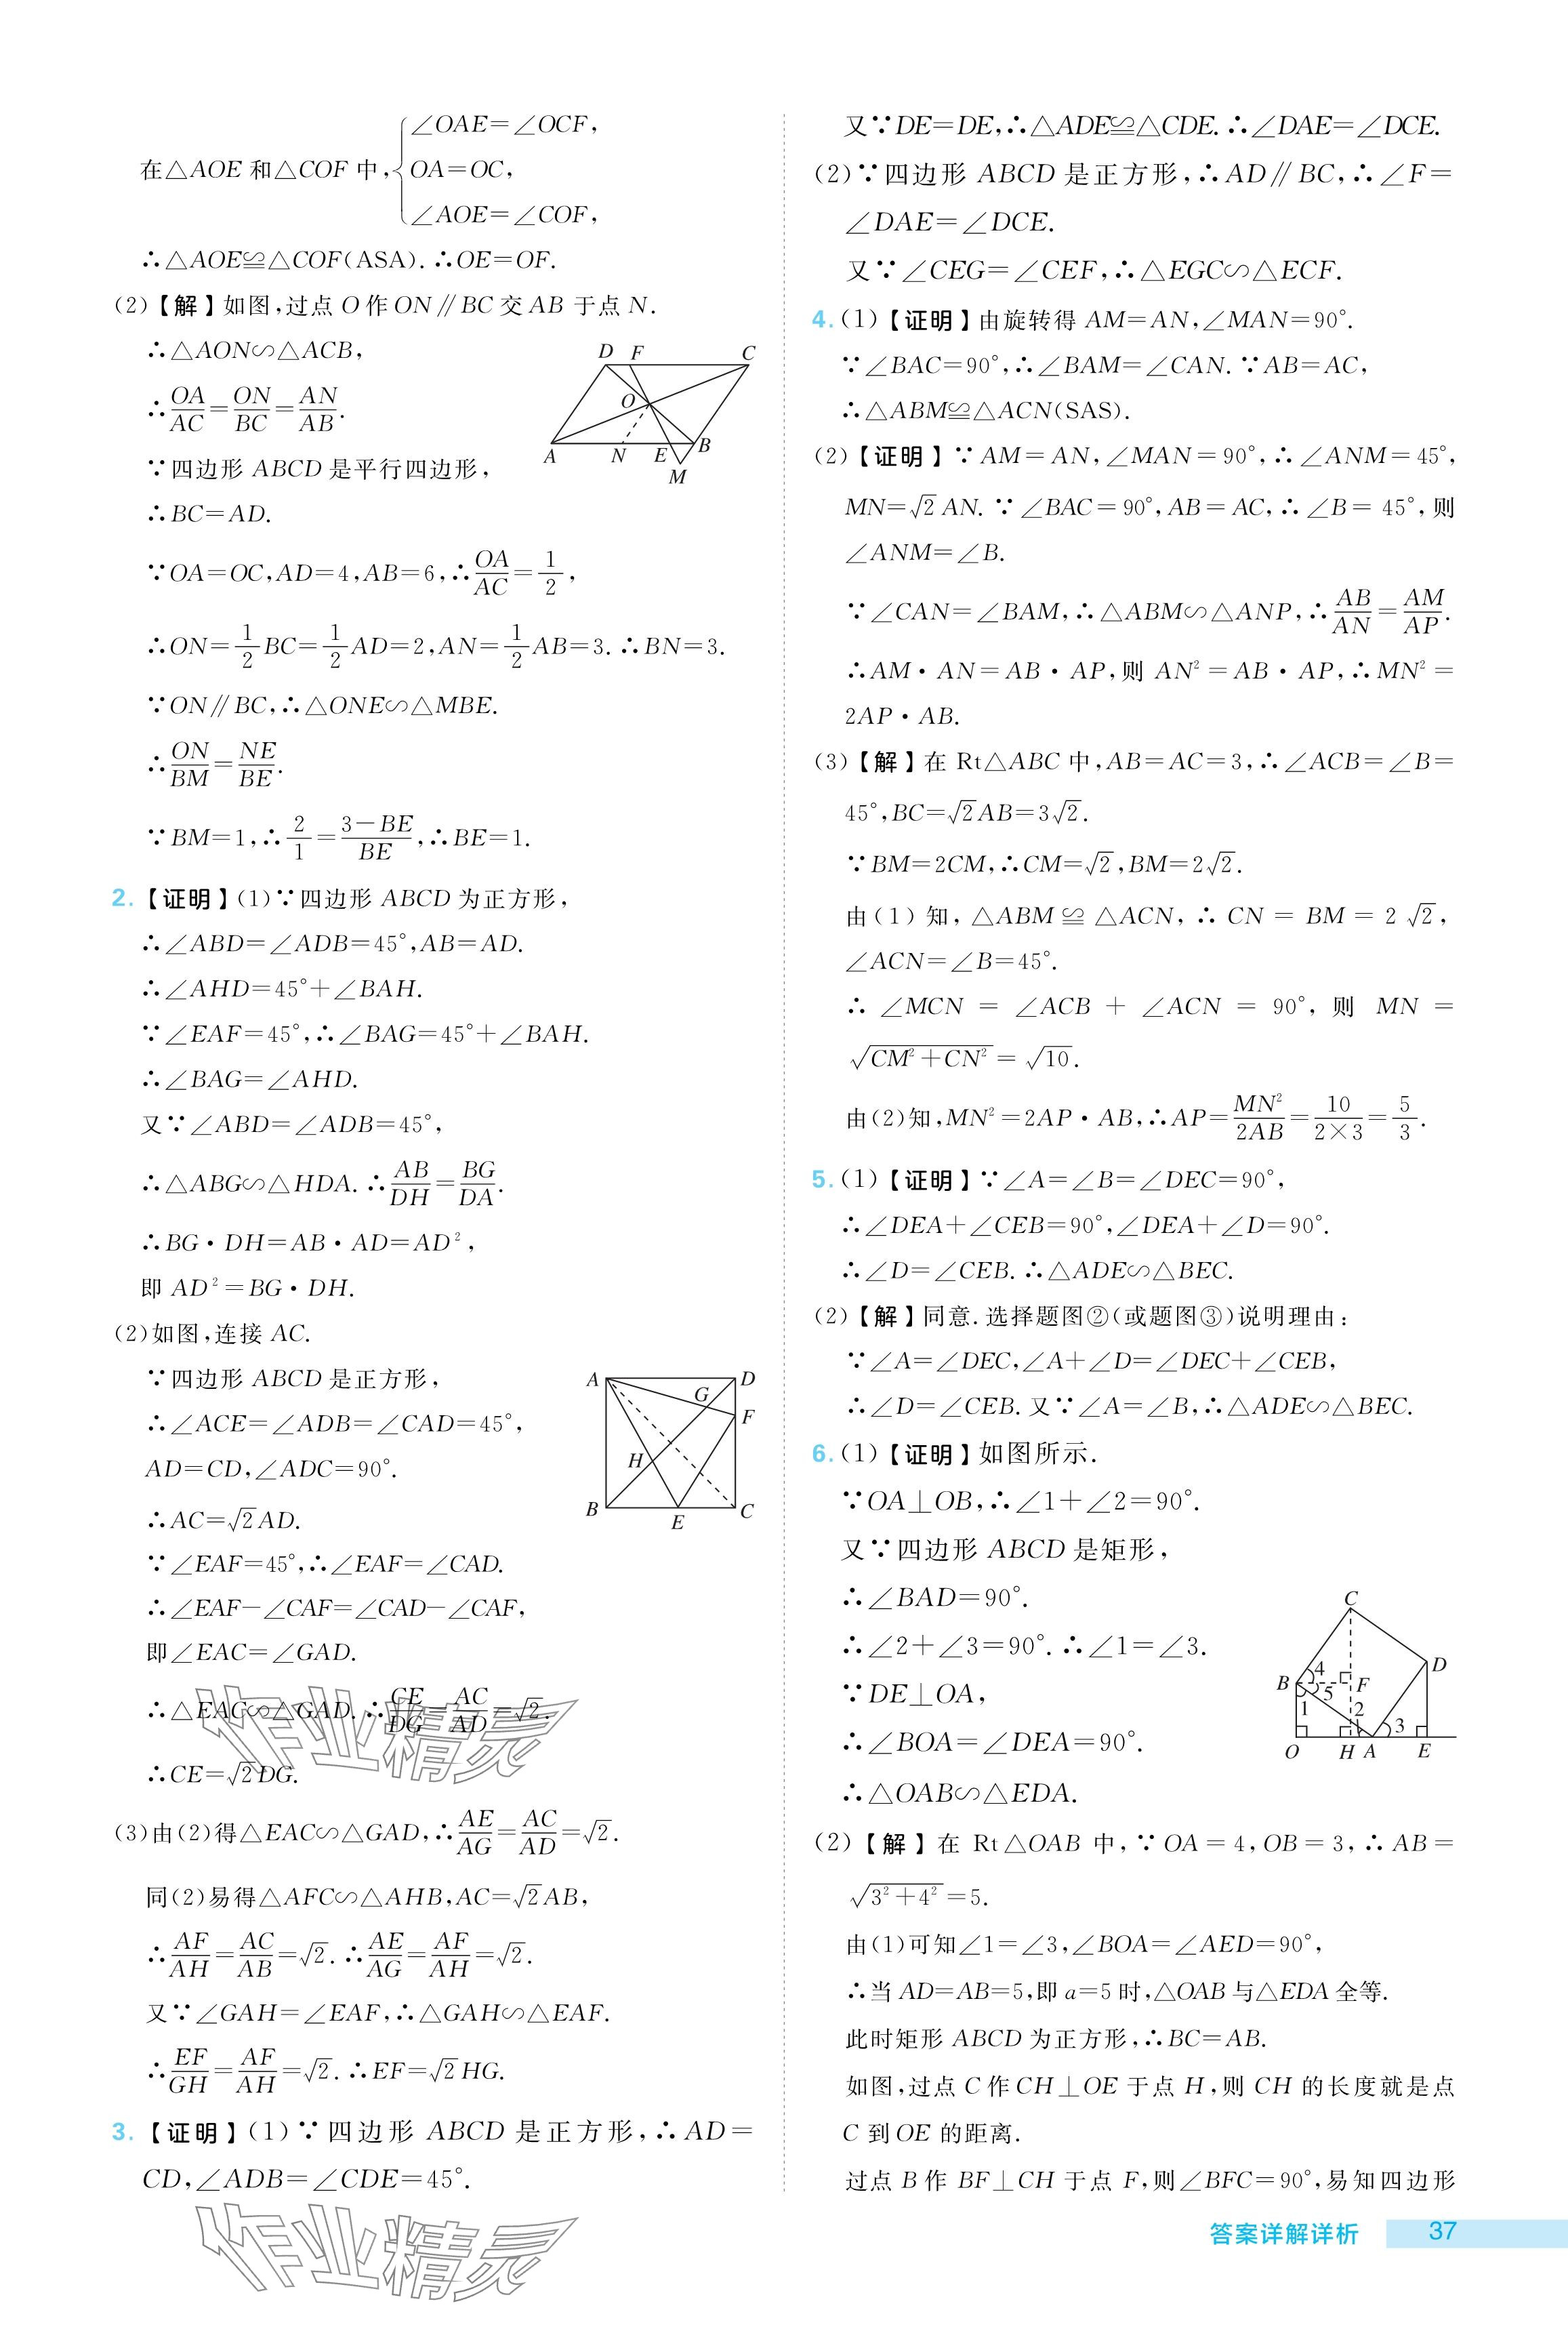 在△AOE 和△COF 中,{∠OAE=∠OCF,
OA=OC,
∠AOE=∠COF,
∴△AOE≌△COF(ASA). ∴OE=OF.
(2)【解】如图,过点 O 作 ON∥BC 交 AB 于点 N.
∴△AON∽△ACB,
∴OA/AC=ON/BC=AN/AB.
∵四边形 ABCD 是平行四边形,
∴BC=AD.
D F C
O
A N E B
M
∵OA=OC,AD=4,AB=6,∴OA/AC=1/2,
∴ON=1/2BC=1/2AD=2,AN=1/2AB=3. ∴BN=3.
∵ON∥BC,∴△ONE∽△MBE.
∴ON/BM=NE/BE.
∵BM=1,∴2/1=(3−BE)/BE,∴BE=1.
2.【证明】(1)∵四边形 ABCD 为正方形,
∴∠ABD=∠ADB=45°,AB=AD.
∴∠AHD=45°+∠BAH.
∵∠EAF=45°,∴∠BAG=45°+∠BAH.
∴∠BAG=∠AHD.
又∵∠ABD=∠ADB=45°,
∴△ABG∽△HDA. ∴AB/DH=BG/DA.
∴BG·DH=AB·AD=AD²,
即 AD²=BG·DH.
(2)如图,连接 AC.
∵四边形 ABCD 是正方形,
∴∠ACE=∠ADB=∠CAD=45°,
AD=CD,∠ADC=90°.
∴AC=√2AD.
A D
G
F
H
B E C
∵∠EAF=45°,∴∠EAF=∠CAD.
∴∠EAF−∠CAF=∠CAD−∠CAF,
即∠EAC=∠GAD.
∴△EAC∽△GAD. ∴CE/DG=AC/AD=√2.
∴CE=√2DG.
作业精灵
(3)由(2)得△EAC∽△GAD,∴AE/AG=AC/AD=√2.
同(2)易得△AFC∽△AHB,AC=√2AB,
∴AF/AH=AC/AB=√2. ∴AE/AG=AF/AH=√2.
又∵∠GAH=∠EAF,∴△GAH∽△EAF.
∴EF/GH=AF/AH=√2. ∴EF=√2HG.
3.【证明】(1)∵四边形 ABCD 是正方形,∴AD=
CD,∠ADB=∠CDE=45°.
作业精灵
又∵DE=DE,∴△ADE≌△CDE. ∴∠DAE=∠DCE.
(2)∵四边形 ABCD 是正方形,∴AD∥BC,∴∠F=
∠DAE=∠DCE.
又∵∠CEG=∠CEF,∴△EGC∽△ECF.
4.(1)【证明】由旋转得 AM=AN,∠MAN=90°.
∵∠BAC=90°,∴∠BAM=∠CAN. ∵AB=AC,
∴△ABM≌△ACN(SAS).
(2)【证明】∵AM=AN,∠MAN=90°,∴∠ANM=45°,
MN=√2AN. ∵∠BAC=90°,AB=AC,∴∠B=45°,则
∠ANM=∠B.
∵∠CAN=∠BAM,∴△ABM∽△ANP,∴AB/AN=AM/AP.
∴AM·AN=AB·AP,则 AN²=AB·AP,∴MN²=
2AP·AB.
(3)【解】在 Rt△ABC 中,AB=AC=3,∴∠ACB=∠B=
45°,BC=√2AB=3√2.
∵BM=2CM,∴CM=√2,BM=2√2.
由(1)知,△ABM≌△ACN,∴CN=BM=2√2,
∠ACN=∠B=45°.
∴∠MCN=∠ACB+∠ACN=90°,则 MN=
√(CM²+CN²)=√10.
由(2)知,MN²=2AP·AB,∴AP=MN²/2AB=10/(2×3)=5/3.
5.(1)【证明】∵∠A=∠B=∠DEC=90°,
∴∠DEA+∠CEB=90°,∠DEA+∠D=90°.
∴∠D=∠CEB. ∴△ADE∽△BEC.
(2)【解】同意. 选择题图②(或题图③)说明理由:
∵∠A=∠DEC,∠A+∠D=∠DEC+∠CEB,
∴∠D=∠CEB. 又∵∠A=∠B,∴△ADE∽△BEC.
6.(1)【证明】如图所示.
∵OA⊥OB,∴∠1+∠2=90°.
又∵四边形 ABCD 是矩形,
∴∠BAD=90°.
∴∠2+∠3=90°. ∴∠1=∠3.
∵DE⊥OA,
∴∠BOA=∠DEA=90°.
∴△OAB∽△EDA.
C
D
B 4 5 F
1 2 3
O H A E
(2)【解】在 Rt△OAB 中,∵OA=4,OB=3,∴AB=
√(3²+4²)=5.
由(1)可知∠1=∠3,∠BOA=∠AED=90°,
∴当 AD=AB=5,即 a=5 时,△OAB 与△EDA 全等.
此时矩形 ABCD 为正方形,∴BC=AB.
如图,过点 C 作 CH⊥OE 于点 H,则 CH 的长度就是点
C 到 OE 的距离.
过点 B 作 BF⊥CH 于点 F,则∠BFC=90°,易知四边形
答案详解详析 37